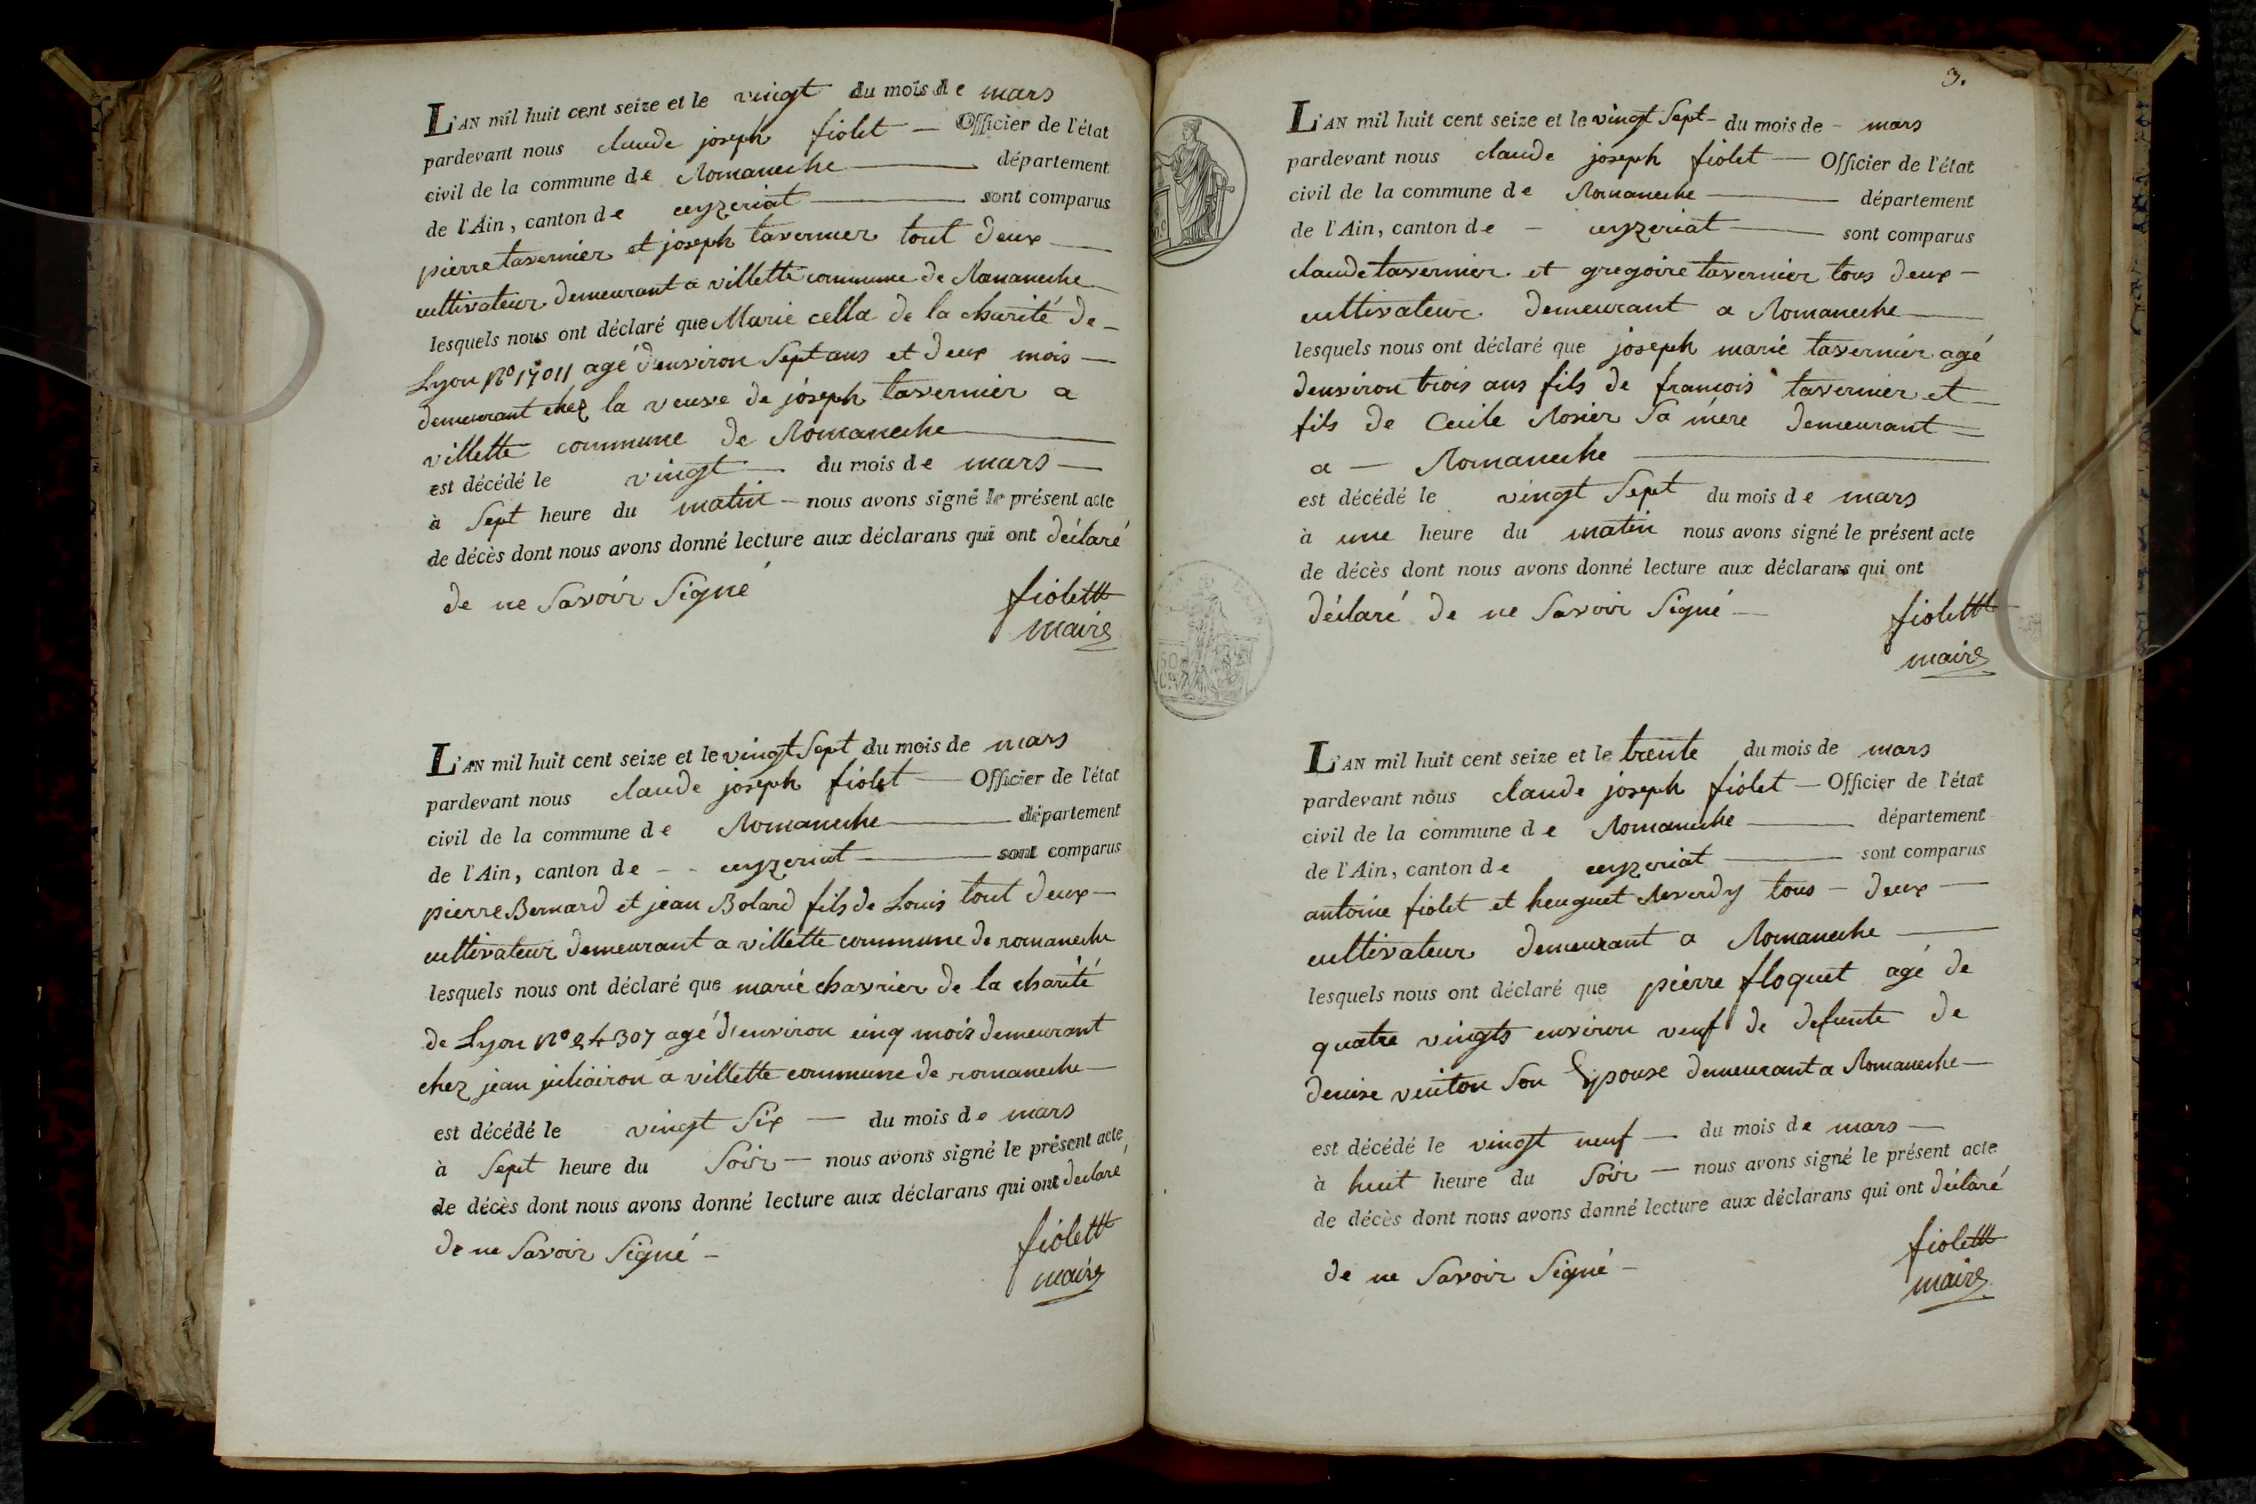 L'AN mil huit cent seize et le vingt du mois de mars
pardevant nous claude joseph fiolet — Officier de l'état
civil de la commune de Romaneche — département
de l'Ain, canton de ceyzeriat — sont comparus
pierre tavernier et joseph tavernier tout deux —
cultivateur demeurant a villette commune de Romaneche
lesquels nous ont déclaré que Marie cella de la charité de -
Lyon No 17011 agé d'environ Sept ans et deux mois —
demeurant chez la veuve de joseph tavernier a
villette commune de Romaneche —
est décédé le vingt — du mois de mars —
à Sept heure du matin — nous avons signé le présent acte
de décès dont nous avons donné lecture aux déclarans qui ont déclaré
de ne Savoir Signé
fiolet
maire
L'AN mil huit cent seize et le vingt Sept du mois de mars
pardevant nous claude joseph fiolet — Officier de l'état
civil de la commune de Romaneche — département
de l'Ain, canton de - - ceyzeriat — sont comparus
pierre Bernard et jean Bolard fils de Louis tout deux —
cultivateur demeurant a villette commune de romaneche
lesquels nous ont déclaré que marie chavrier de la charité
de Lyon No 24307 agé d'environ cinq mois demeurant
chez jean juliairon a villette commune de romaneche —
est décédé le vingt Six — du mois de mars
à Sept heure du Soir — nous avons signé le présent acte
de décès dont nous avons donné lecture aux déclarans qui ont declaré
de ne Savoir Signé -
fiolet
maire
3.
L'AN mil huit cent seize et le vingt Sept - du mois de - mars
pardevant nous claude joseph fiolet — Officier de l'état
civil de la commune de Romaneche — département
de l'Ain, canton de - ceyzeriat — sont comparus
claude tavernier et gregoire tavernier tous deux -
cultivateur demeurant a Romaneche —
lesquels nous ont déclaré que joseph marie tavernier agé
denviron trois ans fils de francois tavernier et —
fils de Cecile Rosier Sa mere demeurant =
a — Romaneche —
est décédé le vingt Sept du mois de mars
à une heure du matin nous avons signé le présent acte
de décès dont nous avons donné lecture aux déclarans qui ont
déclaré de ne Savoir Signé —
fiolet
maire
50
L'AN mil huit cent seize et le trente du mois de mars
pardevant nous claude joseph fiolet — Officier de l'état
civil de la commune de Romaneche — département
de l'Ain, canton de ceyzeriat — sont comparus
antoine fiolet et heuguet Reverdy tous - deux —
cultivateur demeurant a Romaneche —
lesquels nous ont déclaré que pierre floquet agé de
quatre vingts environ veuf de defunte de
denise viuton Son Epouse demeurant a Romaneche —
est décédé le vingt neuf — du mois de mars —
à huit heure du Soir — nous avons signé le présent acte
de décès dont nous avons donné lecture aux déclarans qui ont déclaré
de ne Savoir Signé -
fiolet
maire